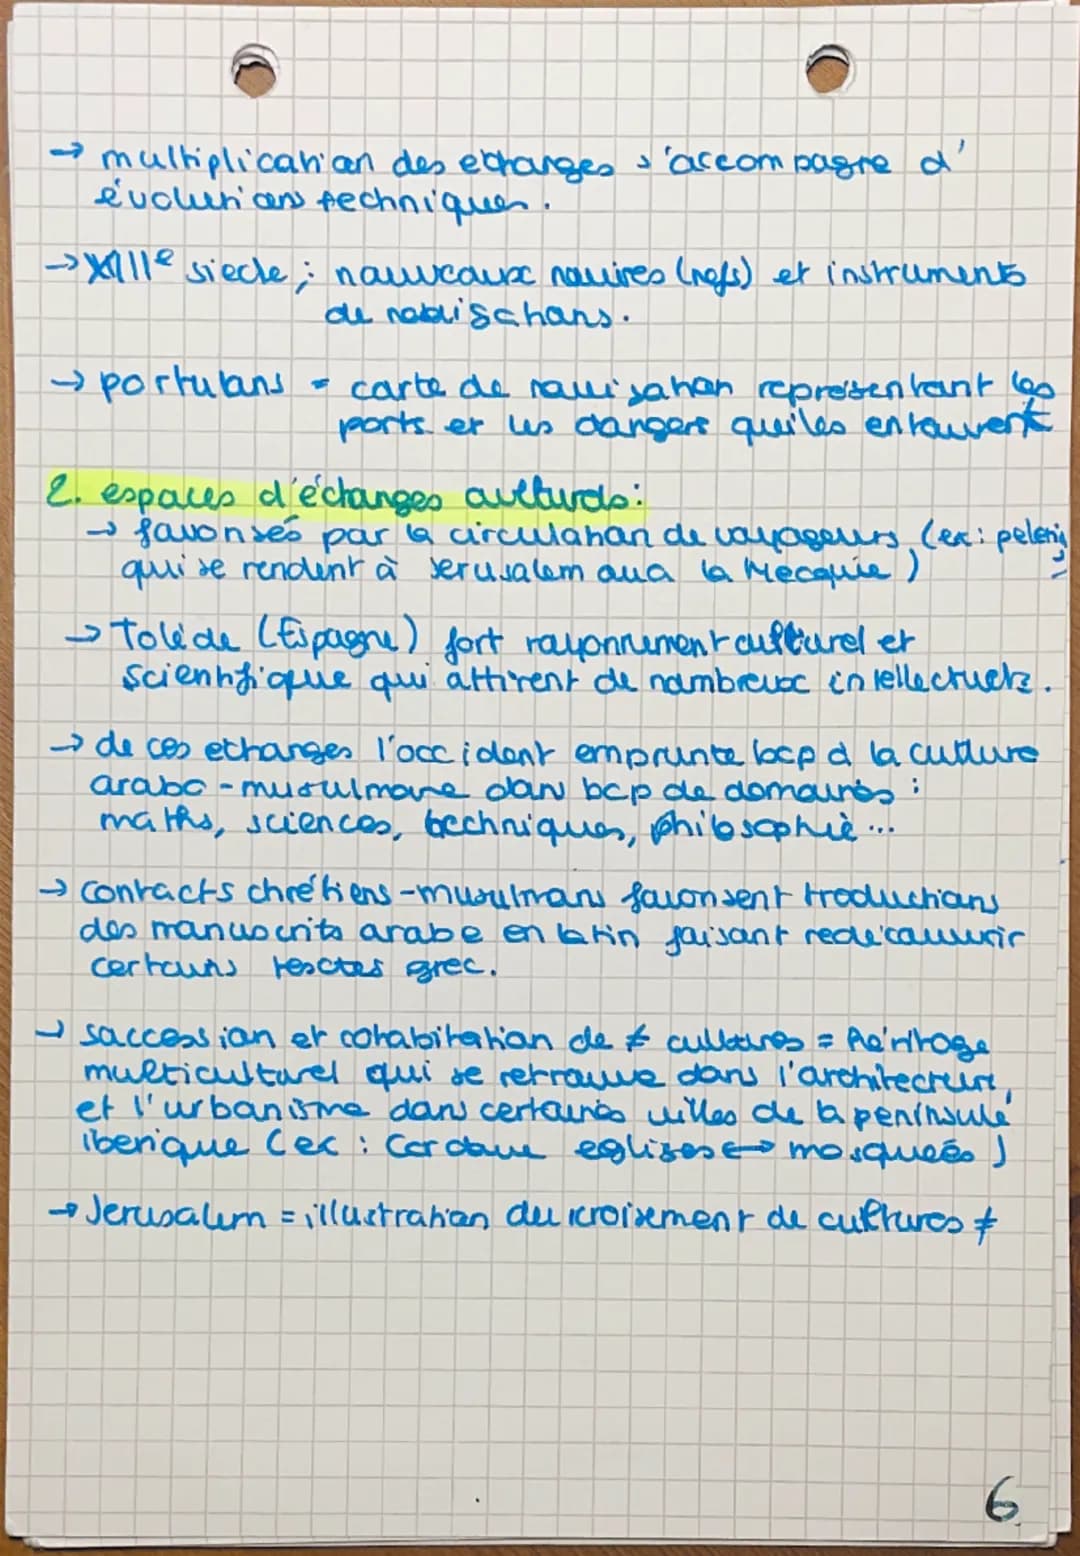 → multiplication des echanges s'accompagne d'
évolutions techniques.
→ XIIIe siecle ; nouveaux navires (nefs) et instruments
de navigations.
→ portulans = carte de navigation representant les
ports et les dangers qui les entourent
2. espaces d'échanges culturels :
→ favorisés par la circulation de voyageurs (ex : pelerins
qui se rendent à Jerusalem ou a la Mecque)
→ Tolède (Espagne) fort rayonnement culturel et
scientifique qui attirent de nombreux intellectuels.
→ de ces echanges l'occident emprunte bcp à la culture
arabo-musulmane dans bcp de domaines :
maths, sciences, techniques, philosophie...
→ contacts chrétiens-musulmans favorisent traductions
des manuscrits arabe en latin faisant redécouvrir
certains textes grec.
→ saccession et cohabitation de ≠ cultures = héritage
multiculturel qui se retrouve dans l'architecture,
et l'urbanisme dans certaines villes de la péninsule
iberique (ex : Cordoue eglises ↔ mosquées)
→ Jerusalem = illustration du croisement de cultures ≠
6